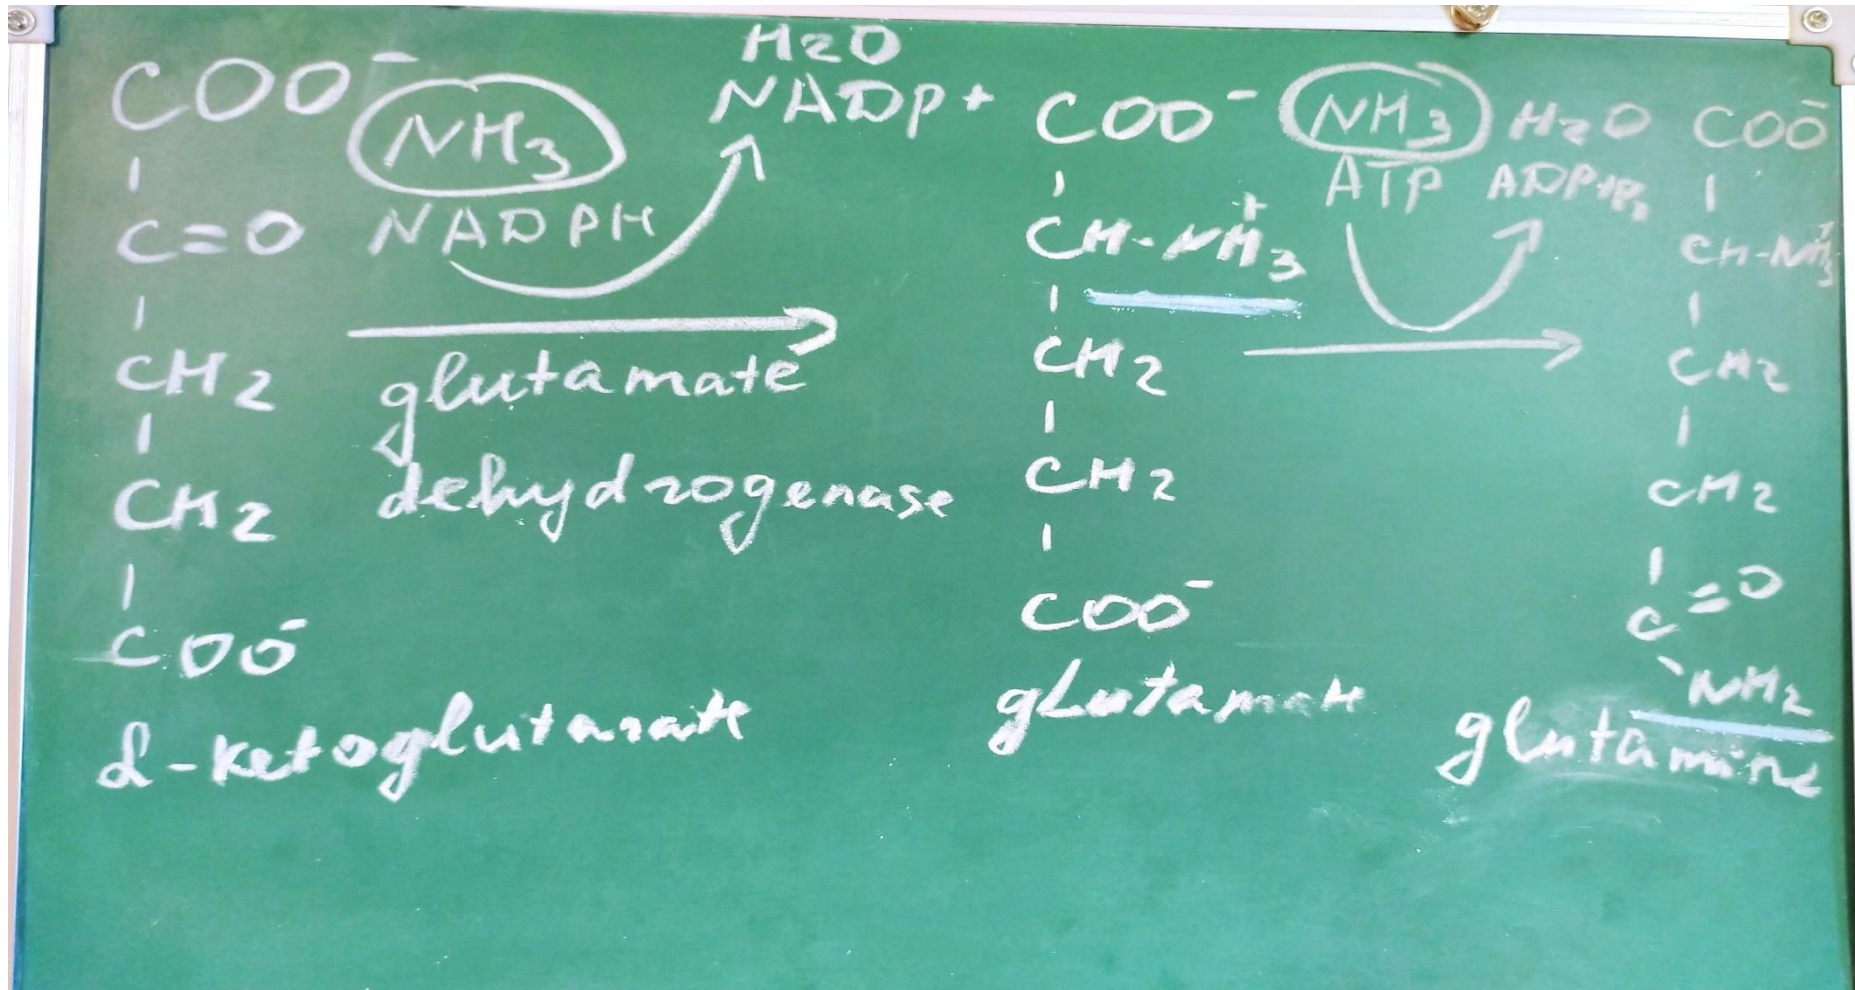 COO⁻
C=O
CH2
CH2
COO⁻
α-ketoglutarate
NH3
NADPH
H2O
NADP+
glutamate
dehydrogenase
COO⁻
CH-NH3⁺
CH2
CH2
COO⁻
glutamate
NH3
ATP
H2O
COO⁻
CH-NH3⁺
CH2
CH2
C=O
NH2
glutamine